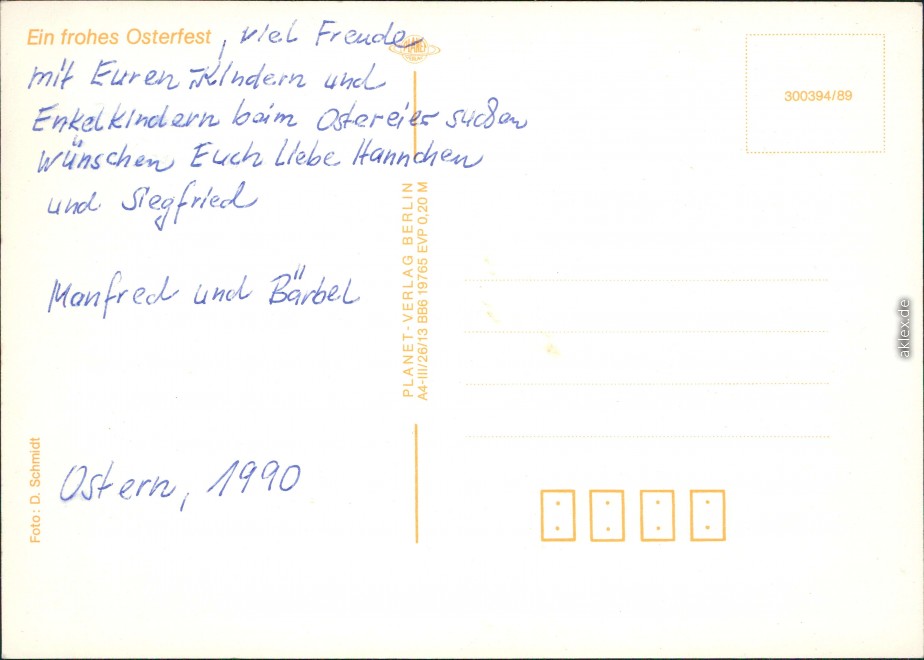 Ein frohes Osterfest, viel Freude
mit Euren Kindern und
Enkelkindern beim Ostereier suchen
wünschen Euch liebe Hannchen
und Siegfried
Manfred und Bärbel
Ostern, 1990
Foto: D. Schmidt
PLANET
PLANET-VERLAG BERLIN
A4-III/26/13 BB6 19765 EVP 0,20 M
300394/89
aklex.de